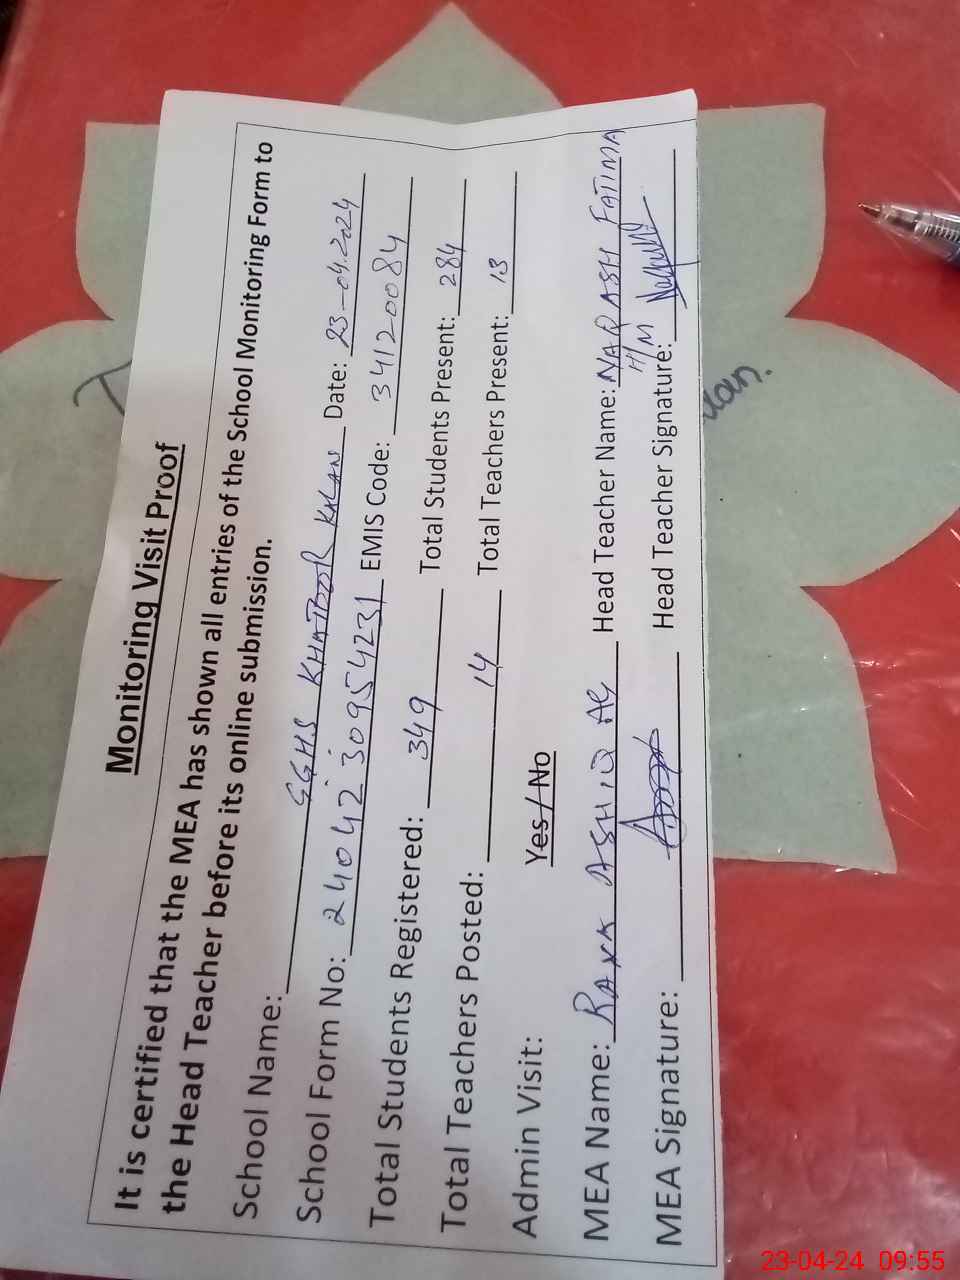 Monitoring Visit Proof
It is certified that the MEA has shown all entries of the School Monitoring Form to
the Head Teacher before its online submission.
School Name: GGHS KHATOOR KALAN Date: 23-04-2024
School Form No: 2404230954231 EMIS Code: 34120084
Total Students Registered: 349 Total Students Present: 284
Total Teachers Posted: 14 Total Teachers Present: 13
Admin Visit: Yes / No
MEA Name: ASHIQ Head Teacher Name: NAQASH FATIMA
H/M
MEA Signature: Head Teacher Signature:
23-04-24 09:55